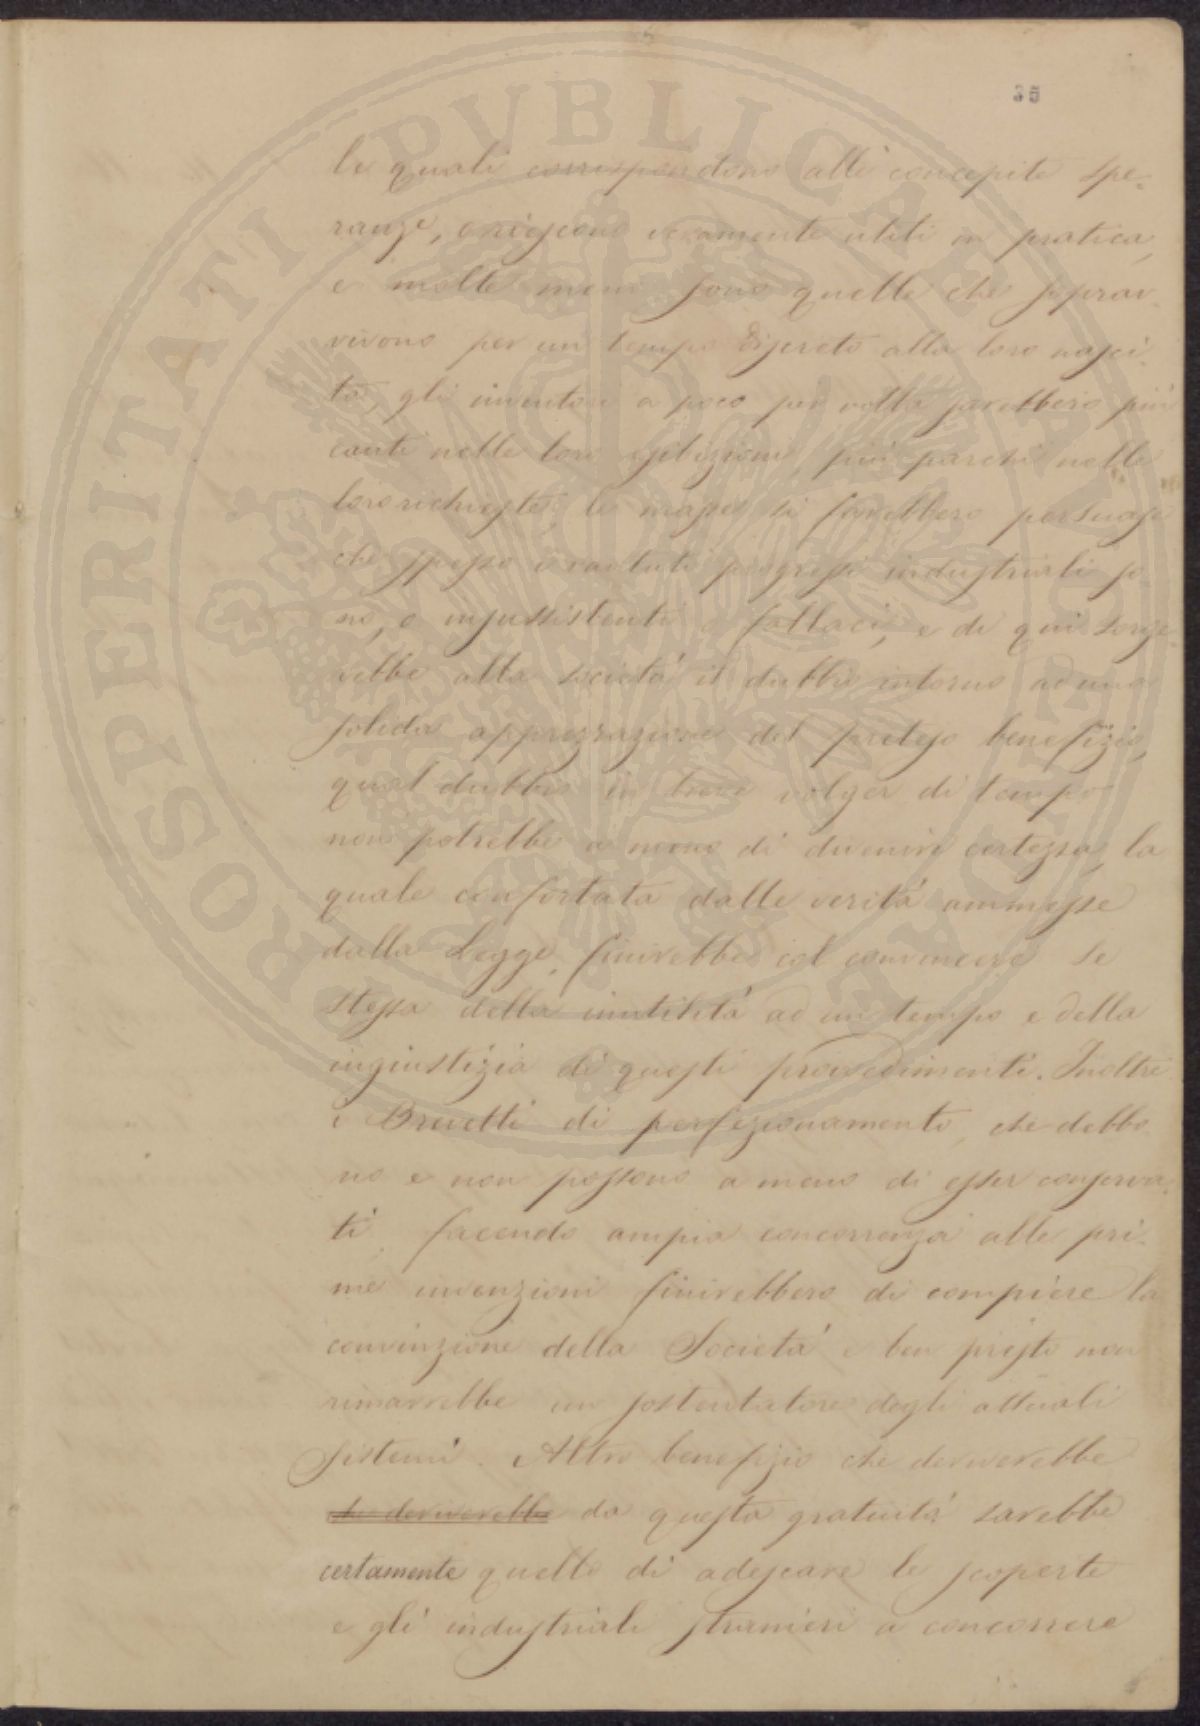 35
le quali corrispondono alle concepite spe-
ranze, o riescono veramente utili in pratica,
e molte meno sono quelle che soprav-
vivono per un tempo discreto alla loro nasci-
ta, gli inventori a poco per volta sarebbero più
cauti nelle loro esibizioni, più parchi nelle
loro richieste, le masse si farebbero persuase
che spesso i vantati progressi industriali so-
no, o insussistenti o fallaci, e di qui sorge-
rebbe alla società il dubbio intorno ad una
solida apprezzazione del preteso benefizio,
qual dubbio in breve volger di tempo
non potrebbe a meno di divenire certezza, la
quale confortata dalle verità ammesse
dalla Legge, finirebbe col convincere se
stessa della inutilità ad un tempo e della
ingiustizia di questi provvedimenti. Inoltre
i Brevetti di perfezionamento, che debbo-
no e non possono a meno di esser conserva-
ti, facendo ampia concorrenza alle pri-
me invenzioni finirebbero di compiere la
convinzione della Società e ben presto non
rimarrebbe un sostentatore degli attuali
Sistemi. Altro benefizio che deriverebbe
che deriverebbe da questa gratuità sarebbe
certamente quello di adescare le scoperte
e gli industriali stranieri a concorrere
PROSPERITATI PVBLICAE AVGENDAE